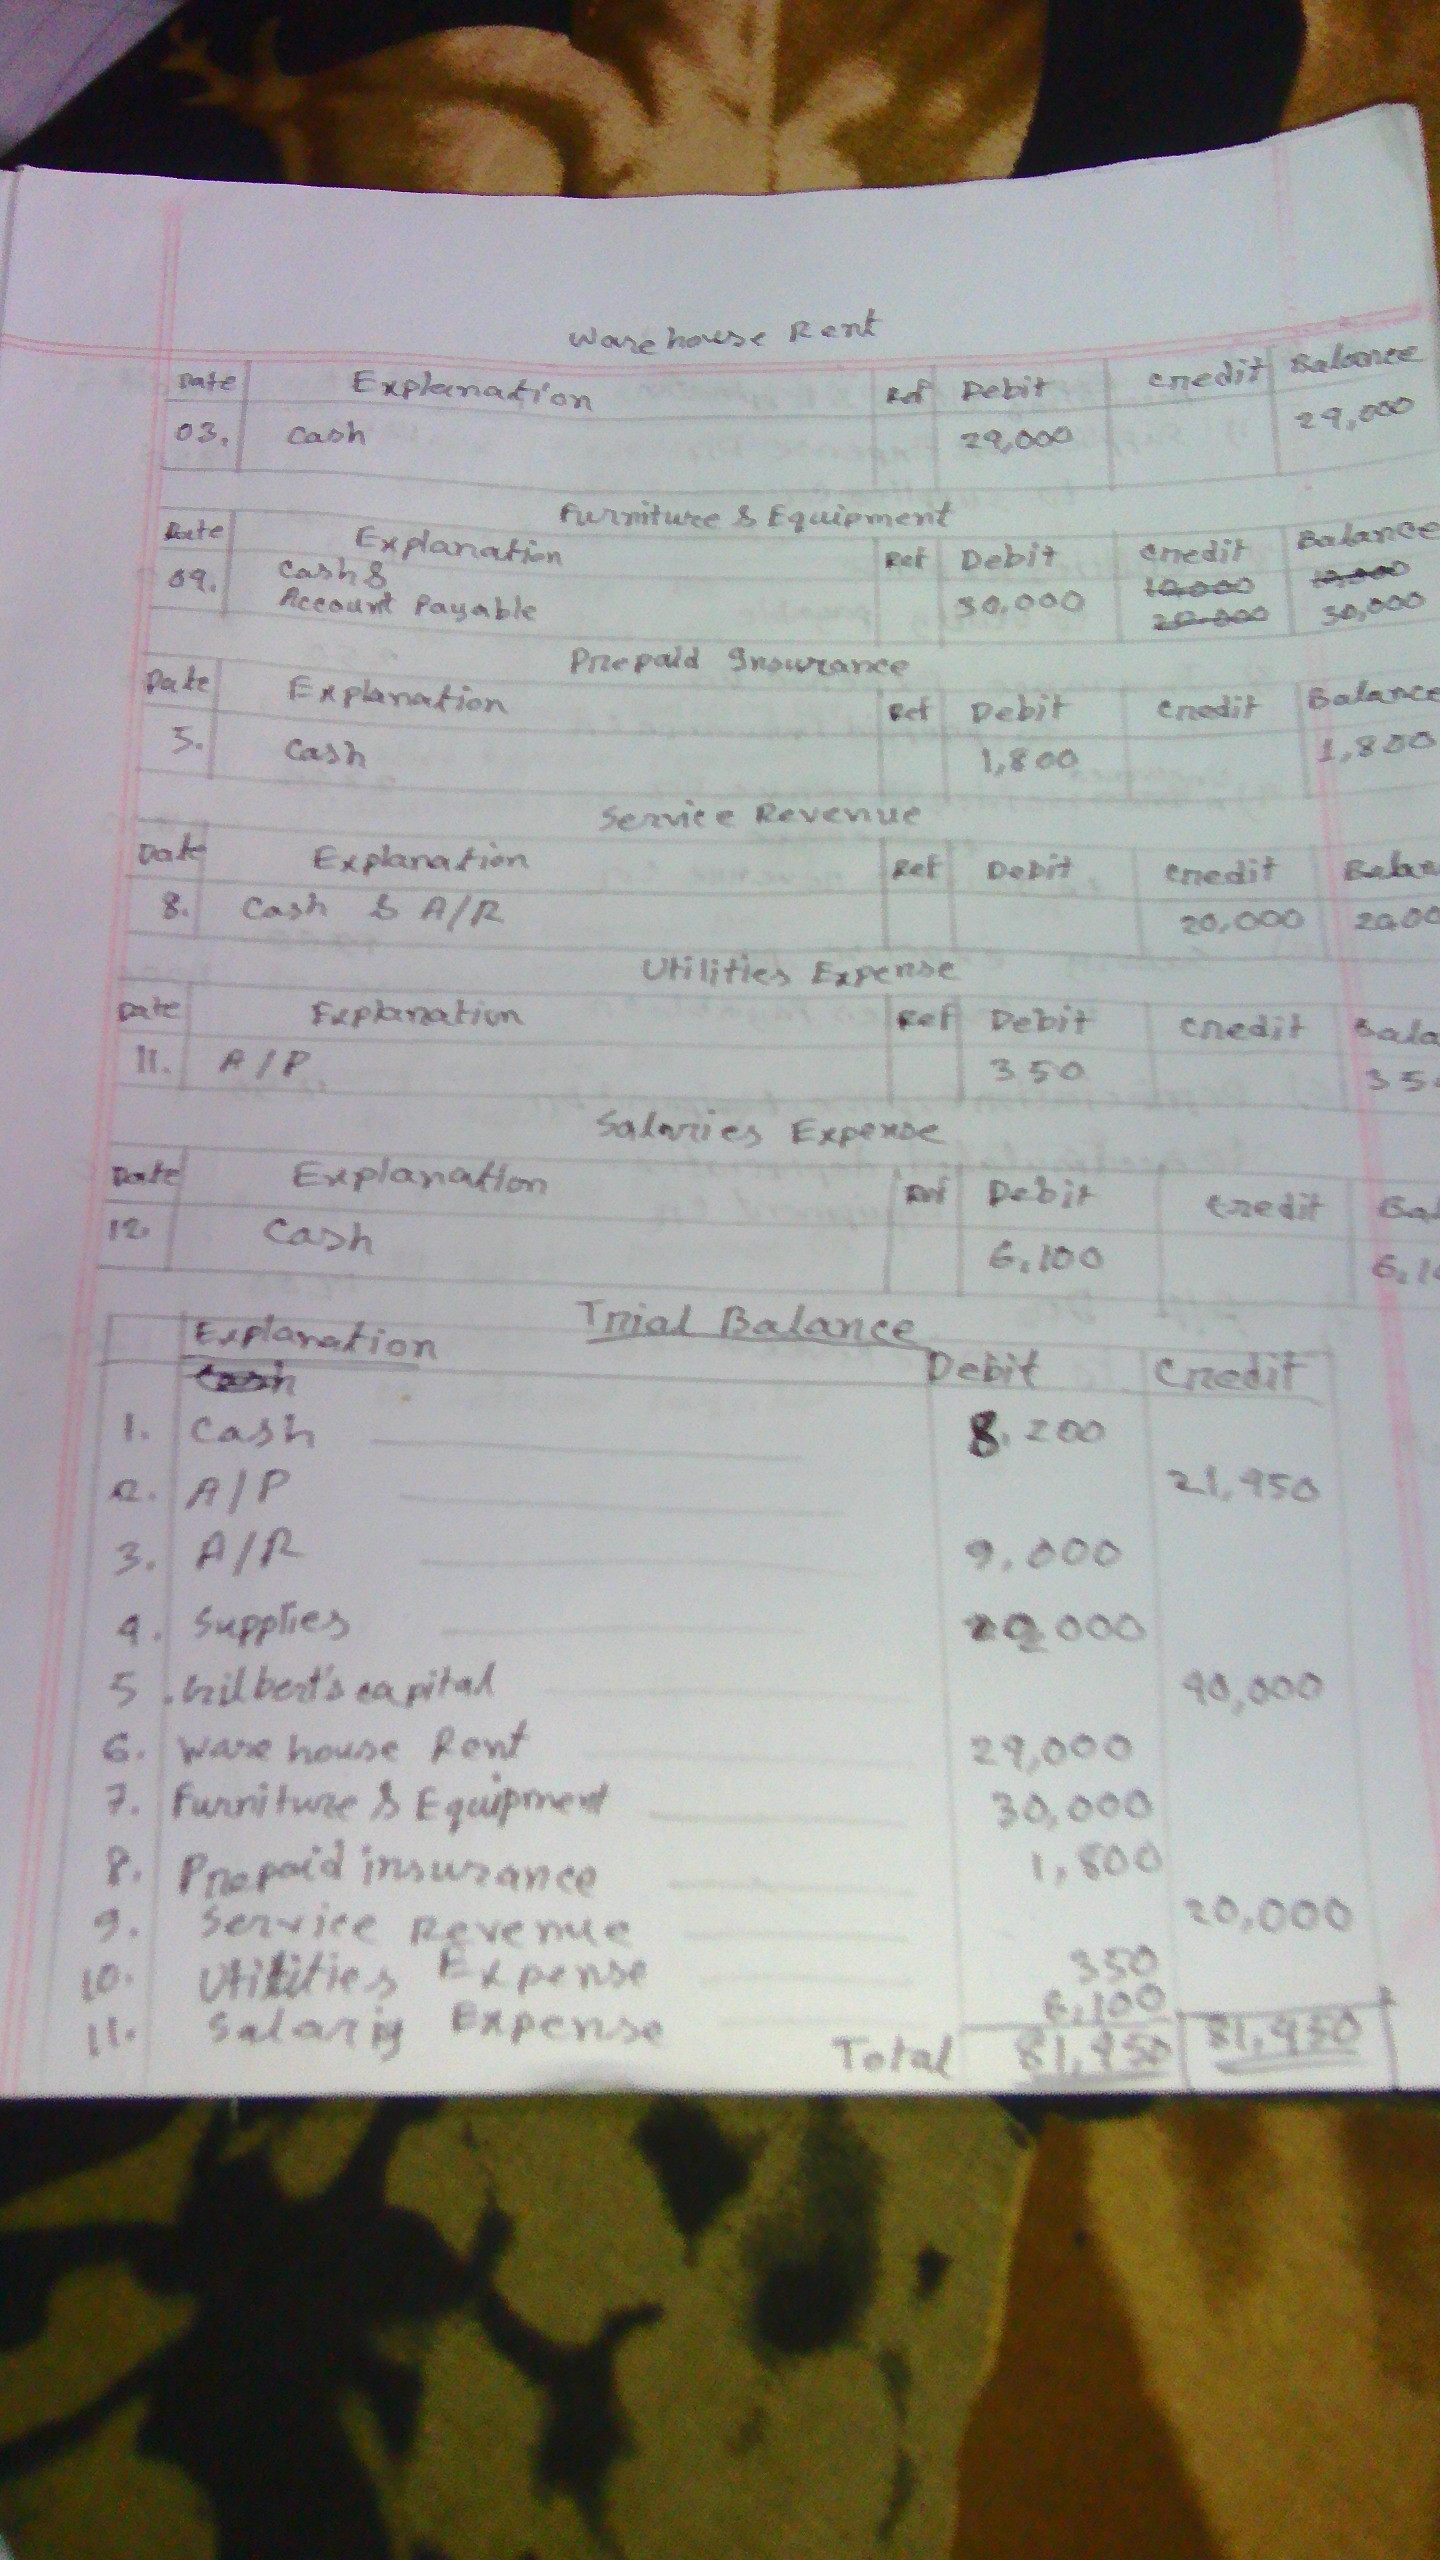 Warehouse Rent
Date Explanation Ref Debit Credit Balance
03. Cash 29,000 29,000
Furniture & Equipment
Date Explanation Ref Debit Credit Balance
09. Cash & 10,000 10,000
Account Payable 30,000 20,000 30,000
Prepaid Insurance
Date Explanation Ref Debit Credit Balance
5. Cash 1,800 1,800
Service Revenue
Date Explanation Ref Debit Credit Balan
8. Cash & A/R 20,000 2000
Utilities Expense
Date Explanation Ref Debit Credit Bala
11. A/P 350 35
Salaries Expense
Date Explanation Ref Debit Credit Bal
12. Cash 6,100 6,1
Trial Balance
Explanation Debit Credit
Cash
1. Cash 8,200
2. A/P 21,950
3. A/R 9,000
4. Supplies
5. Gilbert's capital 40,000
6. Warehouse Rent 29,000
7. Furniture & Equipment 30,000
8. Prepaid insurance 1,800
9. Service Revenue 20,000
10. Utilities Expense 350
11. Expense 6,100
Total 81,950 81,950